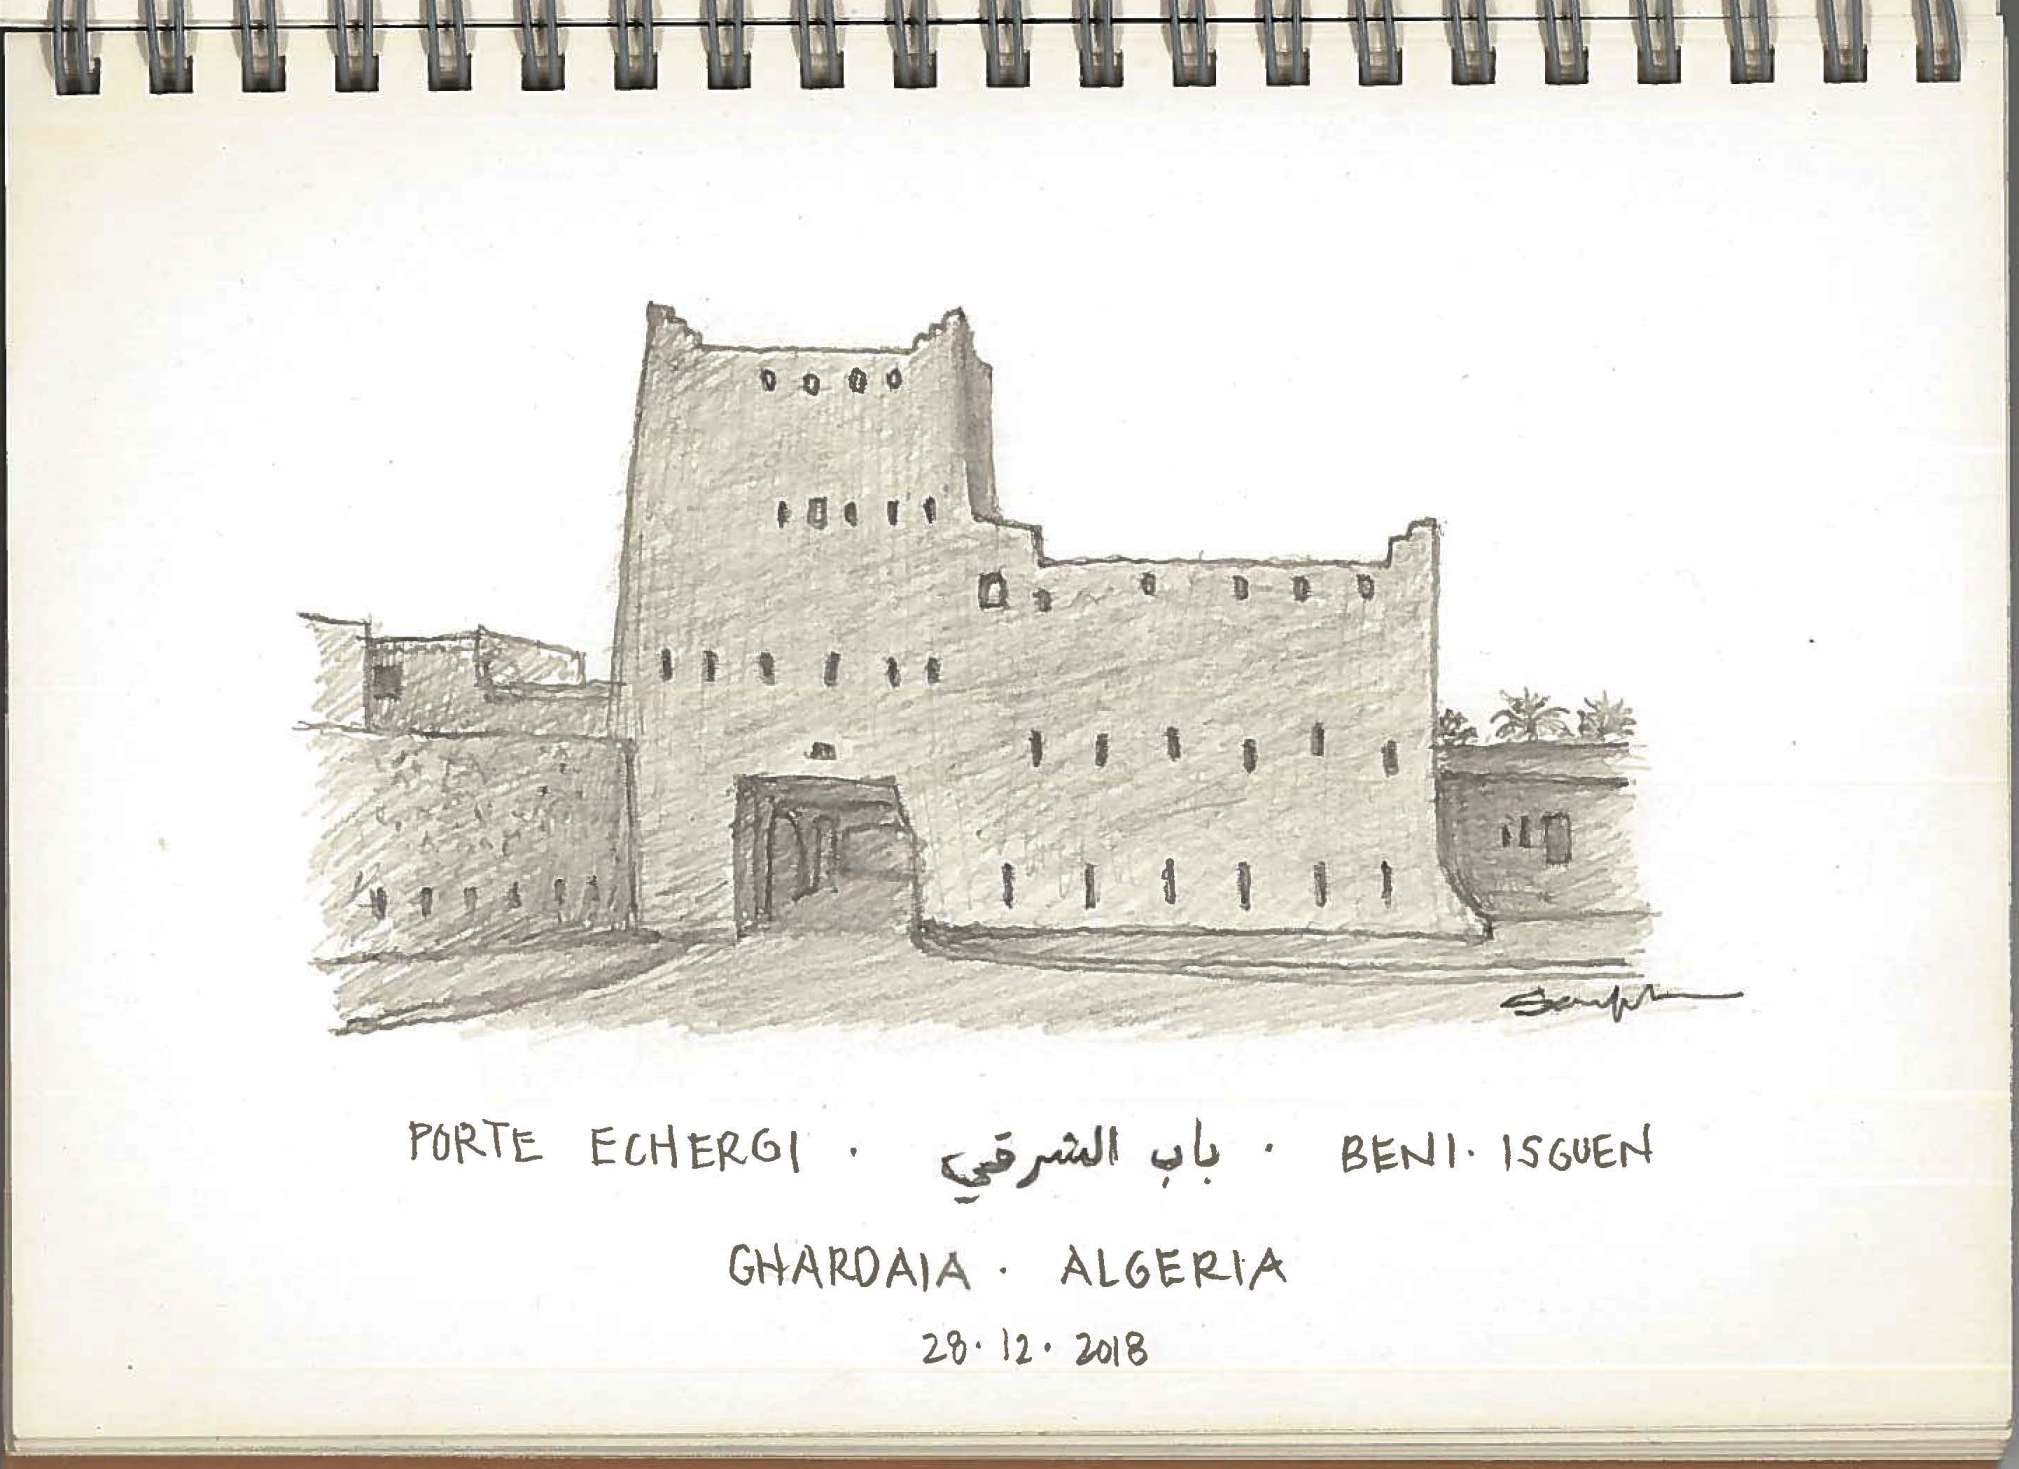 PORTE ECHERGI . باب الشرقي . BENI. ISGUEN
GHARDAIA . ALGERIA
28.12.2018